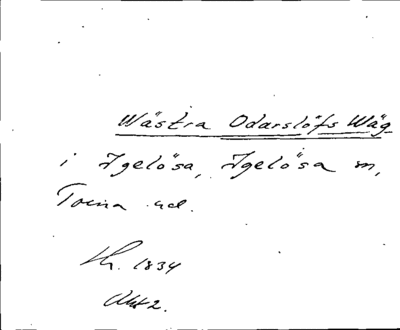 Wästra Odarslöfs Wäg
i Igelösa, Igelösa sn,
Torna hd.
1834
Akt 2.